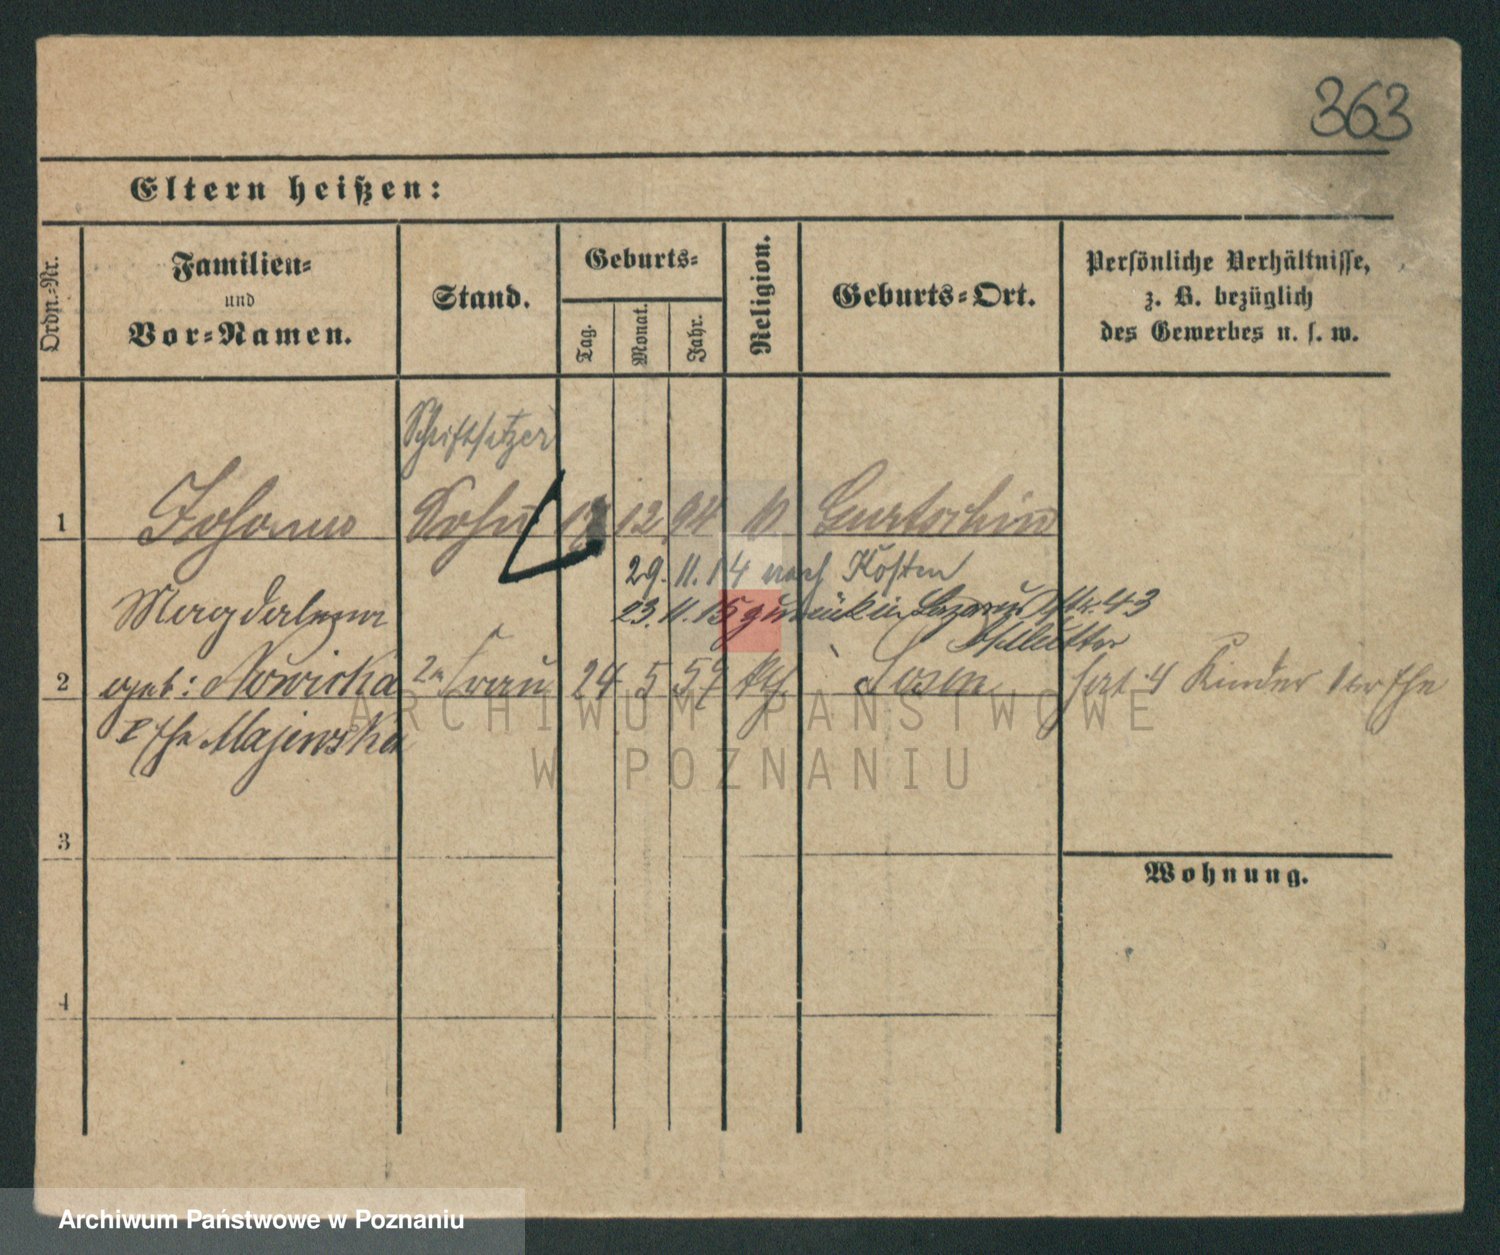 363
Eltern heißen:
Ordn.-Nr.
Familien-
und
Vor-Namen.
Stand.
Geburts-
Tag.
Monat.
Jahr.
Religion.
Geburts-Ort.
Persönliche Verhältnisse,
z. B. bezüglich
des Gewerbes u. s. w.
Schriftsetzer
1 Johann Sohn 12 94 Gurtschin
29.11.14 nach Kosten
23.11.15 zurück in Lazarus 43
Magdalena
2 geb: Nowicka Frau 24 5 59 kth. Posen hat 4 Kinder
Ehe Majewska
3
Wohnung.
4
ARCHIWUM PAŃSTWOWE
W POZNANIU
Archiwum Państwowe w Poznaniu